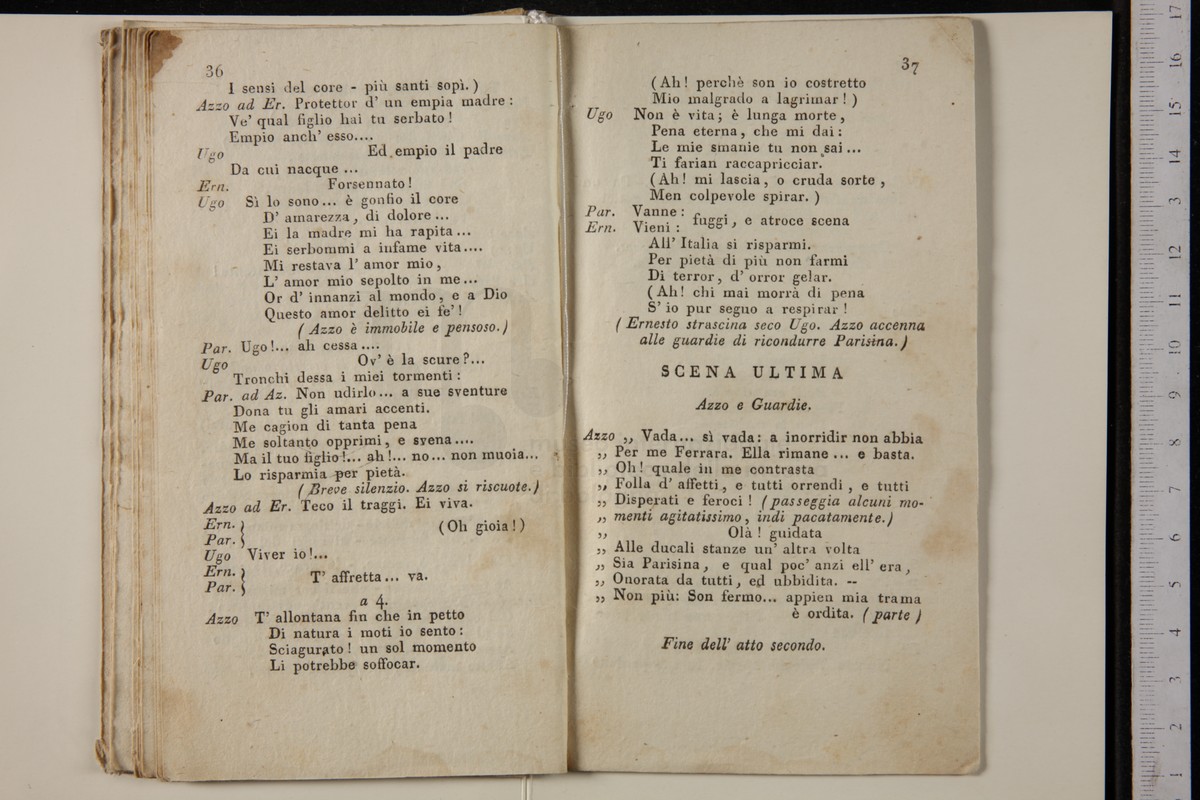 36
I sensi del core - più santi sopì. )
Azzo ad Er. Protettor d' un empia madre :
Ve' qual figlio hai tu serbato !
Empio anch' esso....
Ugo Ed empio il padre
Da cui nacque ...
Ern. Forsennato !
Ugo Sì lo sono... è gonfio il core
D' amarezza, di dolore ...
Ei la madre mi ha rapita ...
Ei serbommi a infame vita....
Mi restava l' amor mio,
L' amor mio sepolto in me...
Or d' innanzi al mondo, e a Dio
Questo amor delitto ei fe' !
( Azzo è immobile e pensoso.)
Par. Ugo !... ah cessa ....
Ugo Ov' è la scure ?...
Tronchi dessa i miei tormenti :
Par. ad Az. Non udirlo... a sue sventure
Dona tu gli amari accenti.
Me cagion di tanta pena
Me soltanto opprimi, e svena....
Ma il tuo figlio !... ah !... no... non muoia...
Lo risparmia per pietà.
( Breve silenzio. Azzo si riscuote.)
Azzo ad Er. Teco il traggi. Ei viva.
Ern. }
Par. } (Oh gioia !)
Ugo Viver io !...
Ern. }
Par. } T' affretta... va.
a 4.
Azzo T' allontana fin che in petto
Di natura i moti io sento :
Sciagurato ! un sol momento
Li potrebbe soffocar.
37
(Ah ! perchè son io costretto
Mio malgrado a lagrimar ! )
Ugo Non è vita; è lunga morte,
Pena eterna, che mi dai :
Le mie smanie tu non sai ...
Ti farian raccapricciar.
(Ah ! mi lascia, o cruda sorte,
Men colpevole spirar. )
Par. Vanne :
Ern. Vieni : fuggi, e atroce scena
All' Italia si risparmi.
Per pietà di più non farmi
Di terror, d' orror gelar.
(Ah ! chi mai morrà di pena
S' io pur seguo a respirar !
( Ernesto strascina seco Ugo. Azzo accenna
alle guardie di ricondurre Parisina.)
SCENA ULTIMA
Azzo e Guardie.
Azzo ,, Vada... sì vada : a inorridir non abbia
,, Per me Ferrara. Ella rimane ... e basta.
,, Oh ! quale in me contrasta
,, Folla d' affetti, e tutti orrendi, e tutti
,, Disperati e feroci ! (passeggia alcuni mo-
,, menti agitatissimo, indi pacatamente.)
,, Olà ! guidata
,, Alle ducali stanze un' altra volta
,, Sia Parisina, e qual poc' anzi ell' era,
,, Onorata da tutti, ed ubbidita. --
,, Non più: Son fermo... appien mia trama
è ordita. (parte )
Fine dell' atto secondo.
1 2 3 4 5 6 7 8 9 10 11 12 13 14 15 16 17